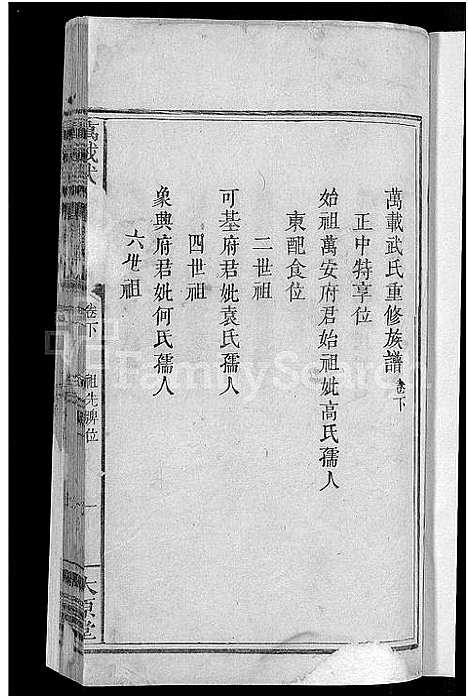 萬載武氏重修族譜卷下
正中特享位
始祖萬安府君始祖妣高氏孺人
東配食位
二世祖
可基府君妣袁氏孺人
四世祖
象典府君妣何氏孺人
六世祖
萬載武
卷下
祖先牌位
一
太原堂
FamilySearch